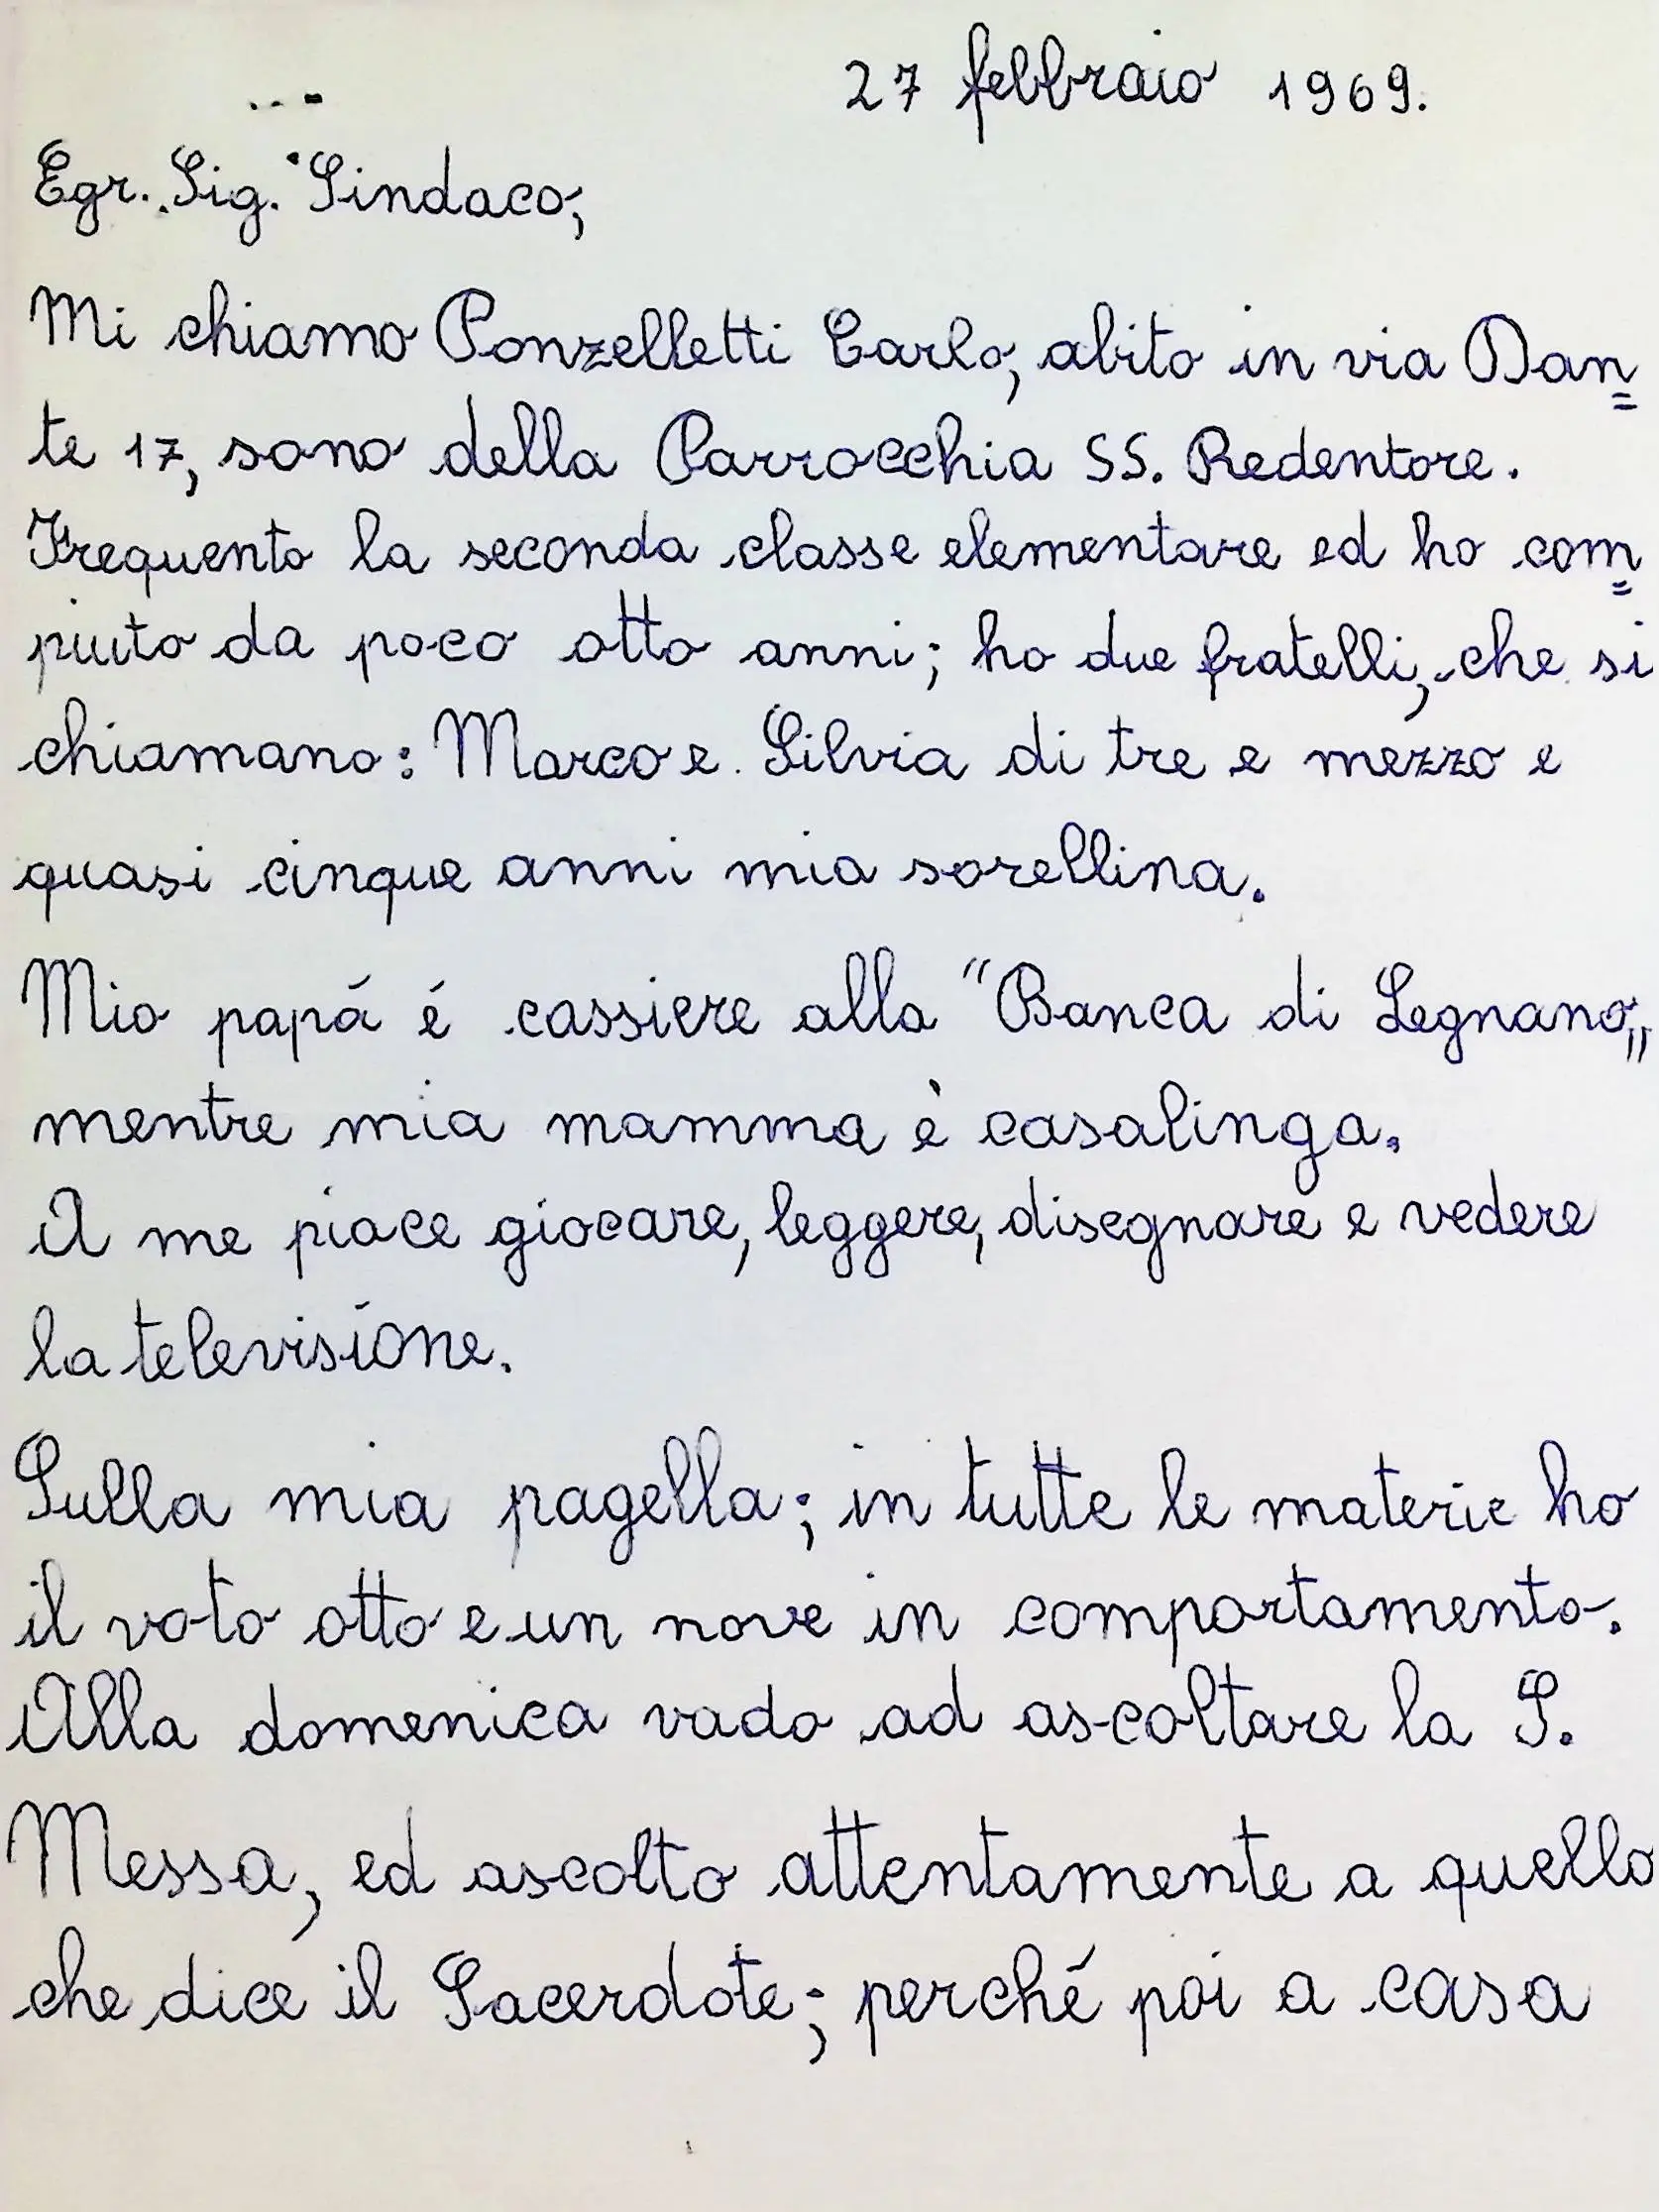 27 febbraio 1969.
Egr. Sig. Sindaco;
Mi chiamo Ponzelletti Carlo, abito in via Dan=
te 17, sono della Parrocchia SS. Redentore.
Frequento la seconda classe elementare ed ho com=
piuto da poco otto anni; ho due fratelli, che si
chiamano: Marco e Silvia di tre e mezzo e
quasi cinque anni mia sorellina.
Mio papá é cassiere alla "Banca di Legnano„
mentre mia mamma è casalinga.
A me piace giocare, leggere, disegnare e vedere
la televisione.
Sulla mia pagella; in tutte le materie ho
il voto otto e un nove in comportamento.
Alla domenica vado ad ascoltare la S.
Messa, ed ascolto attentamente a quello
che dice il Sacerdote; perché poi a casa